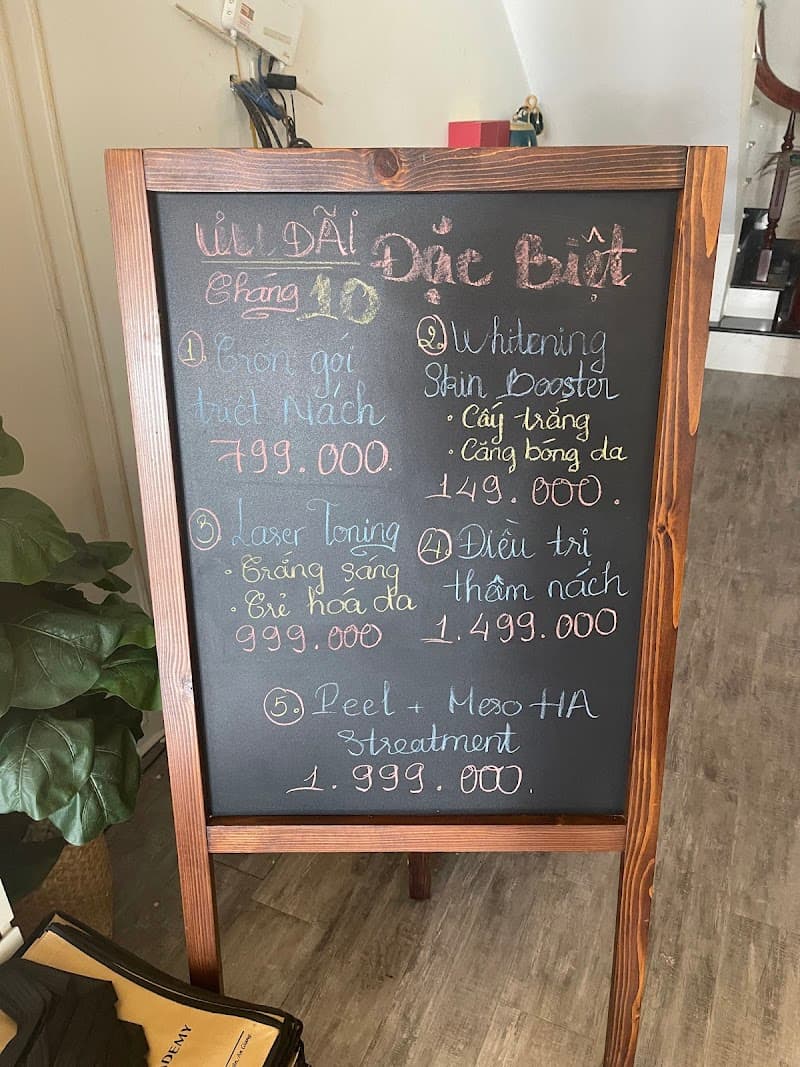 ƯU ĐÃI Đặc Biệt
Tháng 10
1. Trọn gói
triệt Nách
799.000.
2. Whitening
Skin Booster
• Cấy trắng
• Căng bóng da
149.000.
3 Laser Toning
• Trắng sáng
• Trẻ hóa da
999.000
4. Điều trị
thâm nách
1.499.000
5. Peel + Meso HA
3 treatment
1.999.000.
ADEMY